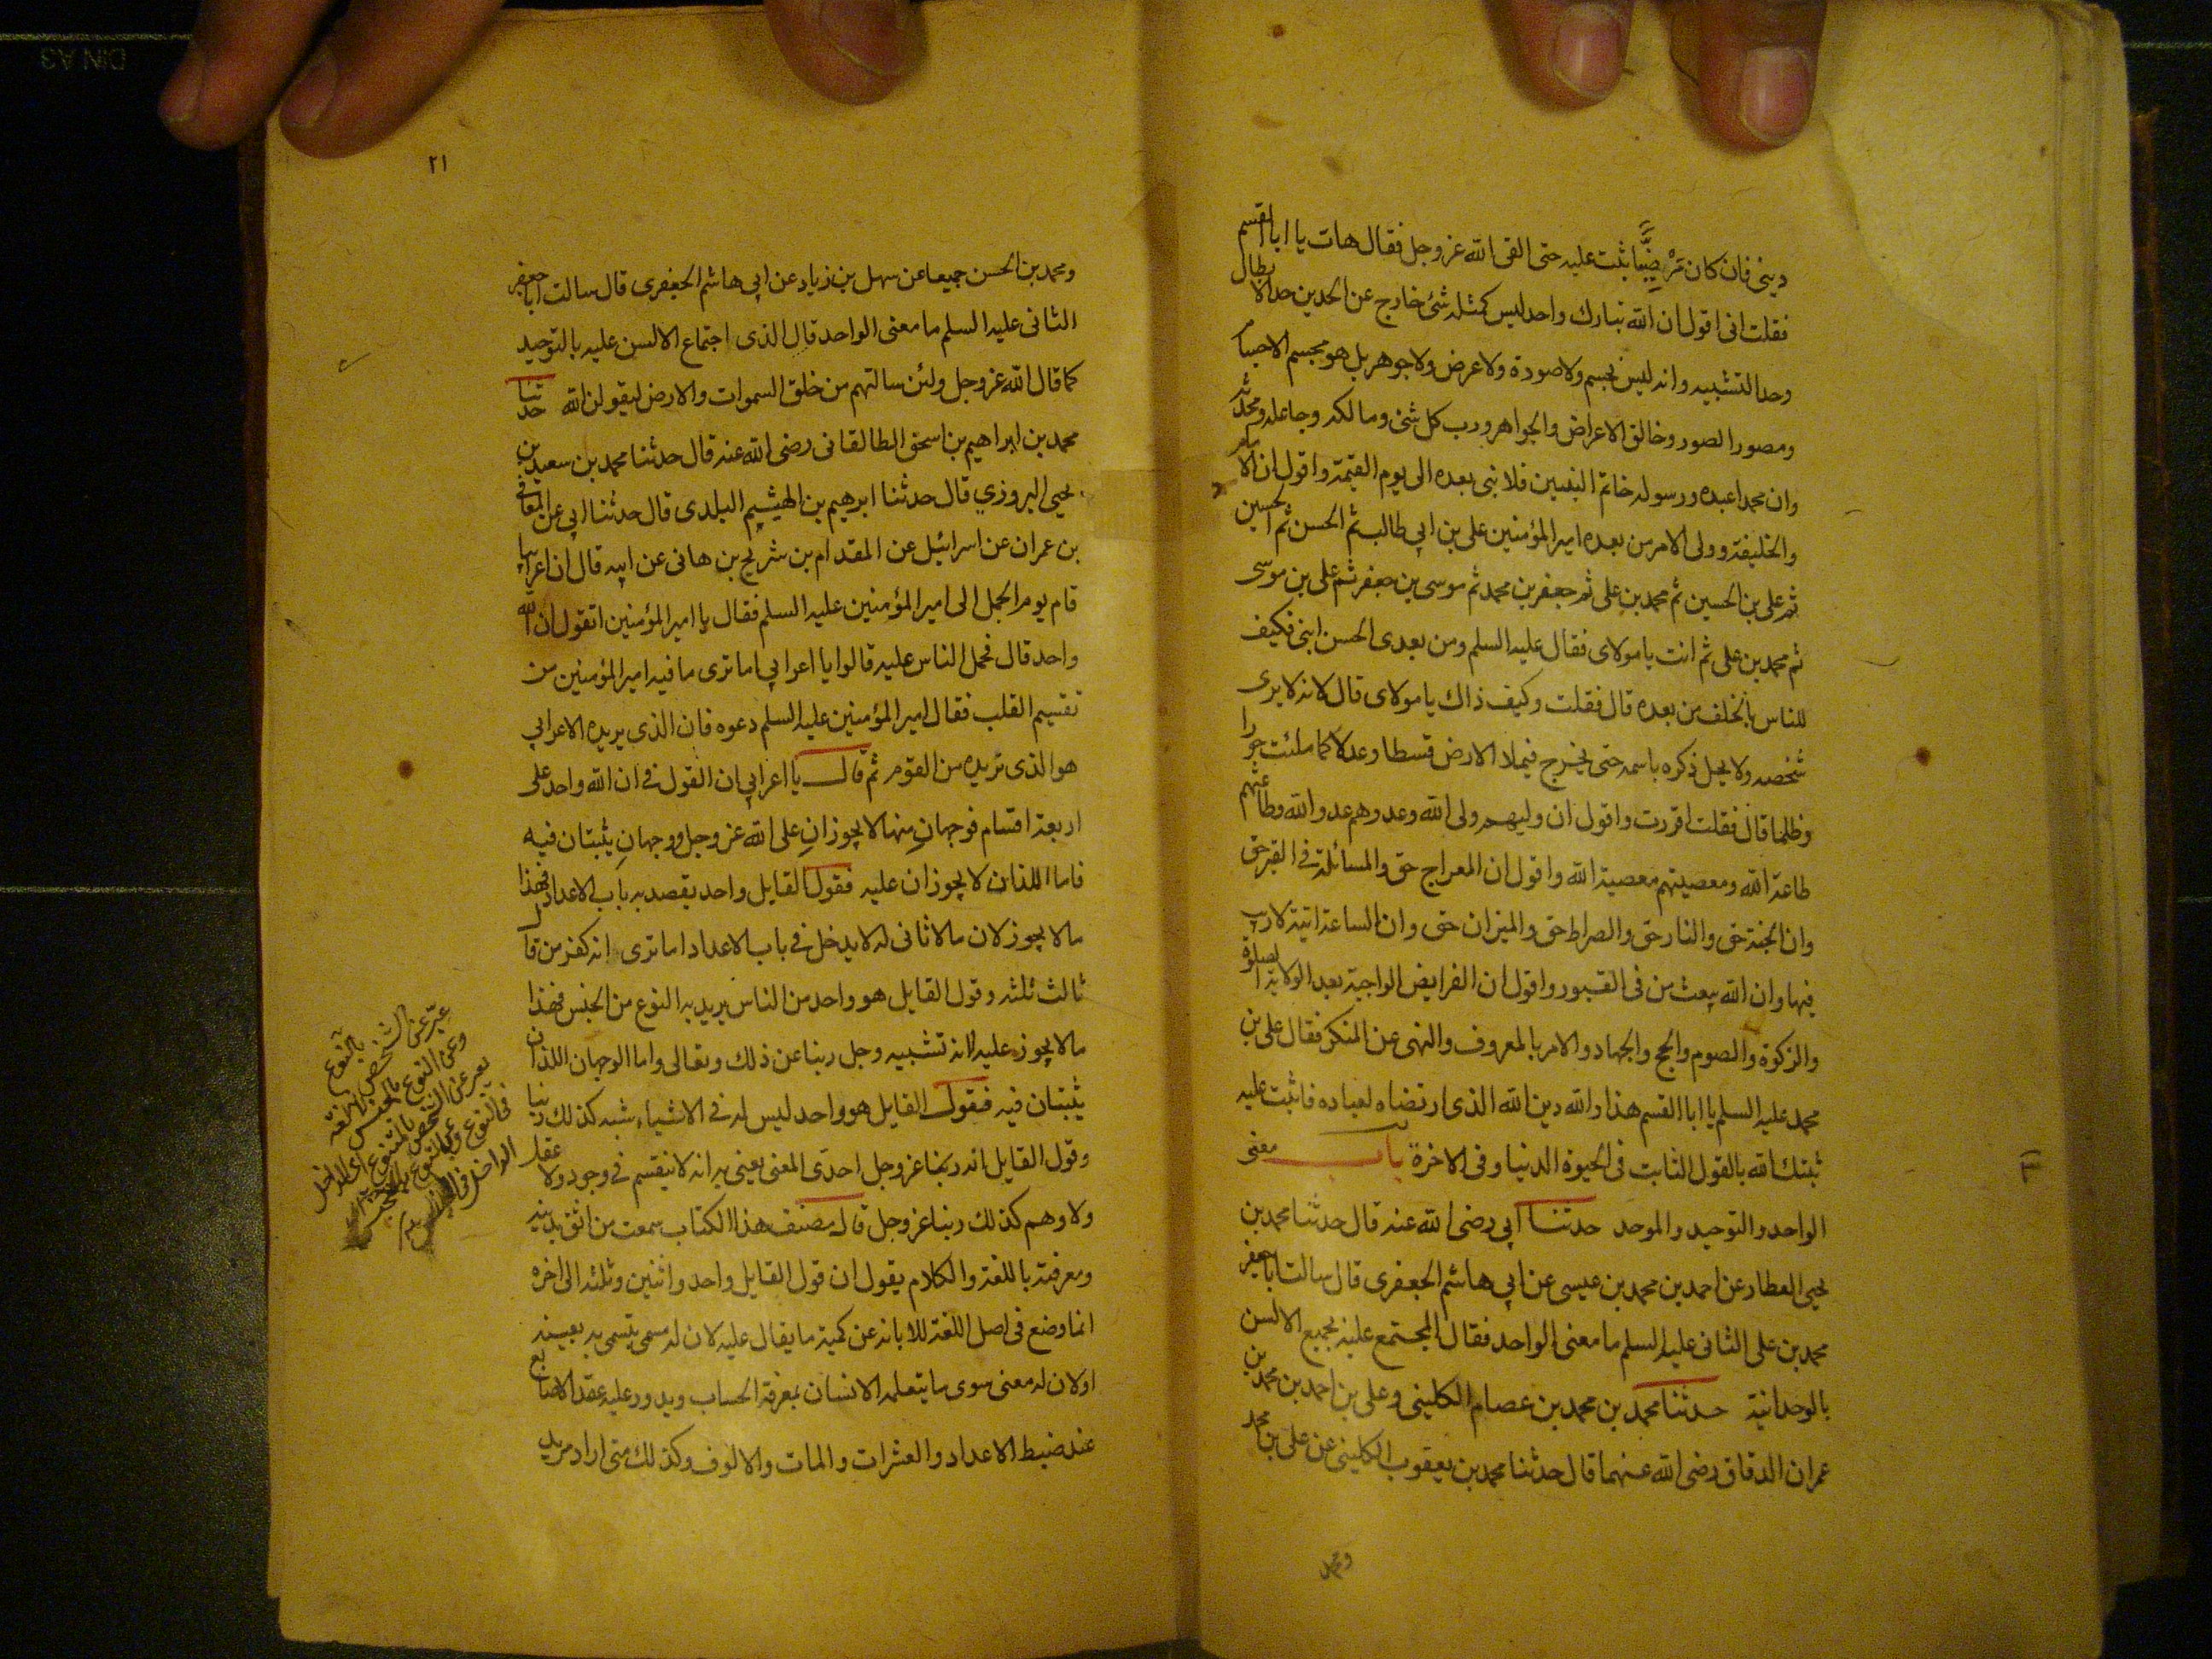 ديني فان كان مرضيا ثبت عليه حتى القى الله عز وجل فقال هات يا ابا القسم
فقلت انى اقول ان الله تبارك واحد ليس كمثله شئ خارج عن الحدين حد الابطال
وحد التشبيه وانه ليس بجسم ولا صورة ولا عرض ولا جوهر بل هو مجسم الاجسام
ومصور الصور وخالق الاعراض والجواهر ورب كل شئ ومالكه وجاعله ومحدثه
وان محمدا عبده ورسوله خاتم النبيين فلا نبى بعده الى يوم القيمة واقول ان الامام
والخليفة وولى الامر من بعده امير المؤمنين على بن ابي طالب ثم الحسن ثم الحسين
ثم على بن الحسين ثم محمد بن على ثم جعفر بن محمد ثم موسى بن جعفر ثم على بن موسى
ثم محمد بن على ثم انت يا مولاى فقال عليه السلم ومن بعدى الحسن ابنى فكيف
للناس بالخلف من بعده قال فقلت وكيف ذاك يا مولاى قال لانه لا يرى
شخصه ولا يحل ذكره باسمه حتى يخرج فيملا الارض قسطا وعدلا كما ملئت جورا
وظلما قال فقلت اقررت واقول ان وليهم ولى الله وعدوهم عدو الله وطاعتهم
طاعة الله ومعصيتهم معصية الله واقول ان المعراج حق والمسائلة فى القبر حق
وان الجنة حق والنار حق والصراط حق والميزان حق وان الساعة اتية لا ريب
فيها وان الله يبعث من فى القبور واقول ان الفرايض الواجبة بعد الولاية الصلوة
والزكوة والصوم والحج والجهاد والامر بالمعروف والنهى عن المنكر فقال على بن
محمد عليه السلم يا ابا القسم هذا والله دين الله الذى ارتضاه لعباده فاثبت عليه
ثبتك الله بالقول الثابت فى الحيوة الدنيا وفى الاخرة باب معنى
الواحد والتوحيد والموحد حدثنا ابى رضى الله عنه قال حدثنا محمد بن
يحيى العطار عن احمد بن محمد بن عيسى عن ابي هاشم الجعفرى قال سالت ابا جعفر
محمد بن على الثانى عليه السلم ما معنى الواحد فقال المجتمع عليه بجميع الالسن
بالوحدانية حدثنا محمد بن محمد بن عصام الكلينى وعلى بن احمد بن محمد بن
عمران الدقاق رضى الله عنهما قال حدثنا محمد بن يعقوب الكلينى عن على بن محمد
ومحمد
٢١
ومحمد بن الحسن جميعا عن سهل بن زياد عن ابي هاشم الجعفرى قال سالت ابا جعفر
الثانى عليه السلم ما معنى الواحد قال الذى اجتماع الالسن عليه بالتوحيد
كما قال الله عز وجل ولئن سالتهم من خلق السموات والارض ليقولن الله حدثنا
محمد بن ابراهيم بن اسحق الطالقانى رضى الله عنه قال حدثنا محمد بن سعيد بن
يحيى البروزي قال حدثنا ابرهيم بن الهيثم البلدى قال حدثنا ابي عن المعافى
بن عمران عن اسرائيل عن المقدام بن شريح بن هانى عن ابيه قال ان اعرابيا
قام يوم الجمل الى امير المؤمنين عليه السلم فقال يا امير المؤمنين اتقول ان الله
واحد قال فحمل الناس عليه قالوا يا اعرابي اما ترى ما فيه امير المؤمنين من
تقسيم القلب فقال امير المؤمنين عليه السلم دعوه فان الذى يريده الاعرابي
هو الذى نريده من القوم ثم قال يا اعرابي ان القول فى ان الله واحد على
اربعة اقسام فوجهان منها لا يجوزان على الله عز وجل ووجهان يثبتان فيه
فاما اللذان لا يجوزان عليه فقول القايل واحد يقصد به باب الاعداد فهذا
ما لا يجوز لان ما لا ثانى له لا يدخل فى باب الاعداد اما ترى انه كفر من قال
ثالث ثلثة وقول القايل هو واحد من الناس يريد به النوع من الجنس فهذا
ما لا يجوز عليه لانه تشبيه وجل ربنا عن ذلك وتعالى واما الوجهان اللذان
يثبتان فيه فقول القايل هو واحد ليس له فى الاشياء شبه كذلك ربنا
وقول القايل انه ربنا عز وجل احدى المعنى يعنى به انه لا ينقسم فى وجود ولا عقل
ولا وهم كذلك ربنا عز وجل قال مصنف هذا الكتاب سمعت من اثق بدينه
ومعرفته باللغة والكلام يقول ان قول القايل واحد واثنين وثلثة الى اخره
انما وضع فى اصل اللغة للابانة عن كمية ما يقال عليه لان له مسمى يتسمى به بعينه
او لان له معنى سوى ما يتعلمه الانسان بمعرفة الحساب ويدور عليه عقد الاصابع
عند ضبط الاعداد والعشرات والمات والالوف وكذلك متى اراد مريد
عبر عن الشخص بالنوع
وعن النوع بالجنس